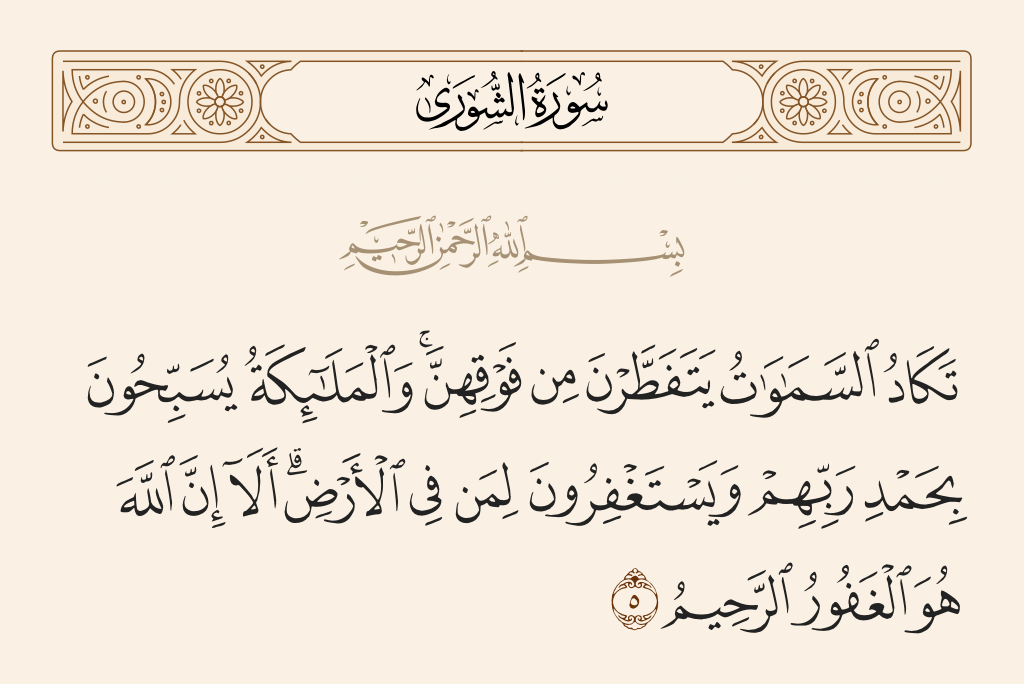 سُورَةُ الشُّورَىٰ
بِسْمِ ٱللَّهِ ٱلرَّحْمَٰنِ ٱلرَّحِيمِ
تَكَادُ ٱلسَّمَٰوَٰتُ يَتَفَطَّرْنَ مِن فَوْقِهِنَّ ۚ وَٱلْمَلَٰٓئِكَةُ يُسَبِّحُونَ
بِحَمْدِ رَبِّهِمْ وَيَسْتَغْفِرُونَ لِمَن فِى ٱلْأَرْضِ ۗ أَلَآ إِنَّ ٱللَّهَ
هُوَ ٱلْغَفُورُ ٱلرَّحِيمُ ٥